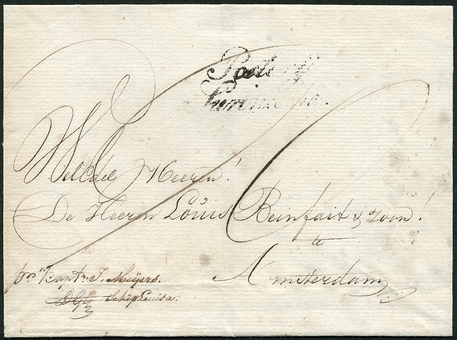 Post
Suriname.
WelEdele Heeren!
De Heeren Louis Beinfait & Zoon!
te
Amsterdam
pr Kapt. J. Meijers.
Schip Louisa.